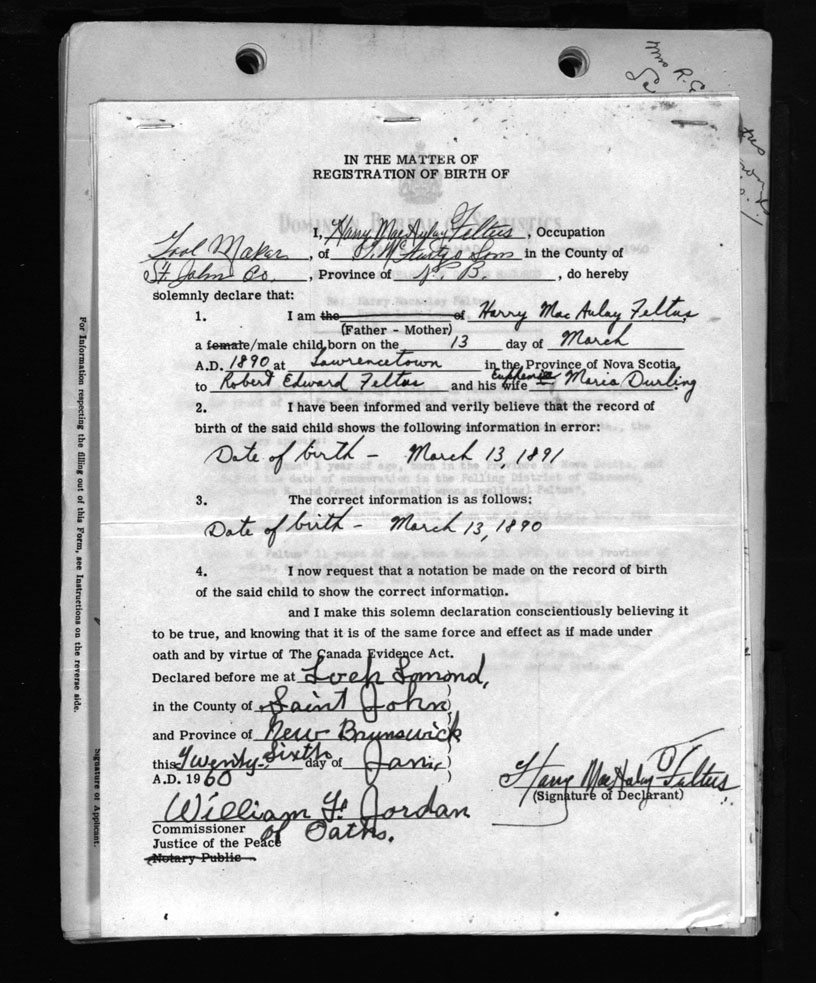 IN THE MATTER OF
REGISTRATION OF BIRTH OF
I, Harry MacAulay Feltus, Occupation
Tool Maker, of Sons in the County of
St. John Co., Province of N. B., do hereby
solemnly declare that:
1. I am the of Harry Mac Aulay Feltus
(Father - Mother)
a female/male child born on the 13 day of March
A.D. 1890 at Lawrencetown in the Province of Nova Scotia
to Robert Edward Feltus and his wife Euphenia Maria Durling
2. I have been informed and verily believe that the record of
birth of the said child shows the following information in error:
Date of birth - March 13, 1891
3. The correct information is as follows:
Date of birth - March 13, 1890
4. I now request that a notation be made on the record of birth
of the said child to show the correct information.
and I make this solemn declaration conscientiously believing it
to be true, and knowing that it is of the same force and effect as if made under
oath and by virtue of The Canada Evidence Act.
Declared before me at Loch Lomond,
in the County of Saint John
and Province of New Brunswick
this Twenty-Sixth day of Jan.,
A.D. 1960
Harry MacAulay Feltus
(Signature of Declarant)
William F. Jordan
Commissioner of Oaths.
Justice of the Peace
Notary Public
For Information respecting the filling out of this Form, see Instructions on the reverse side.
Signature of Applicant.
Mrs R. E.